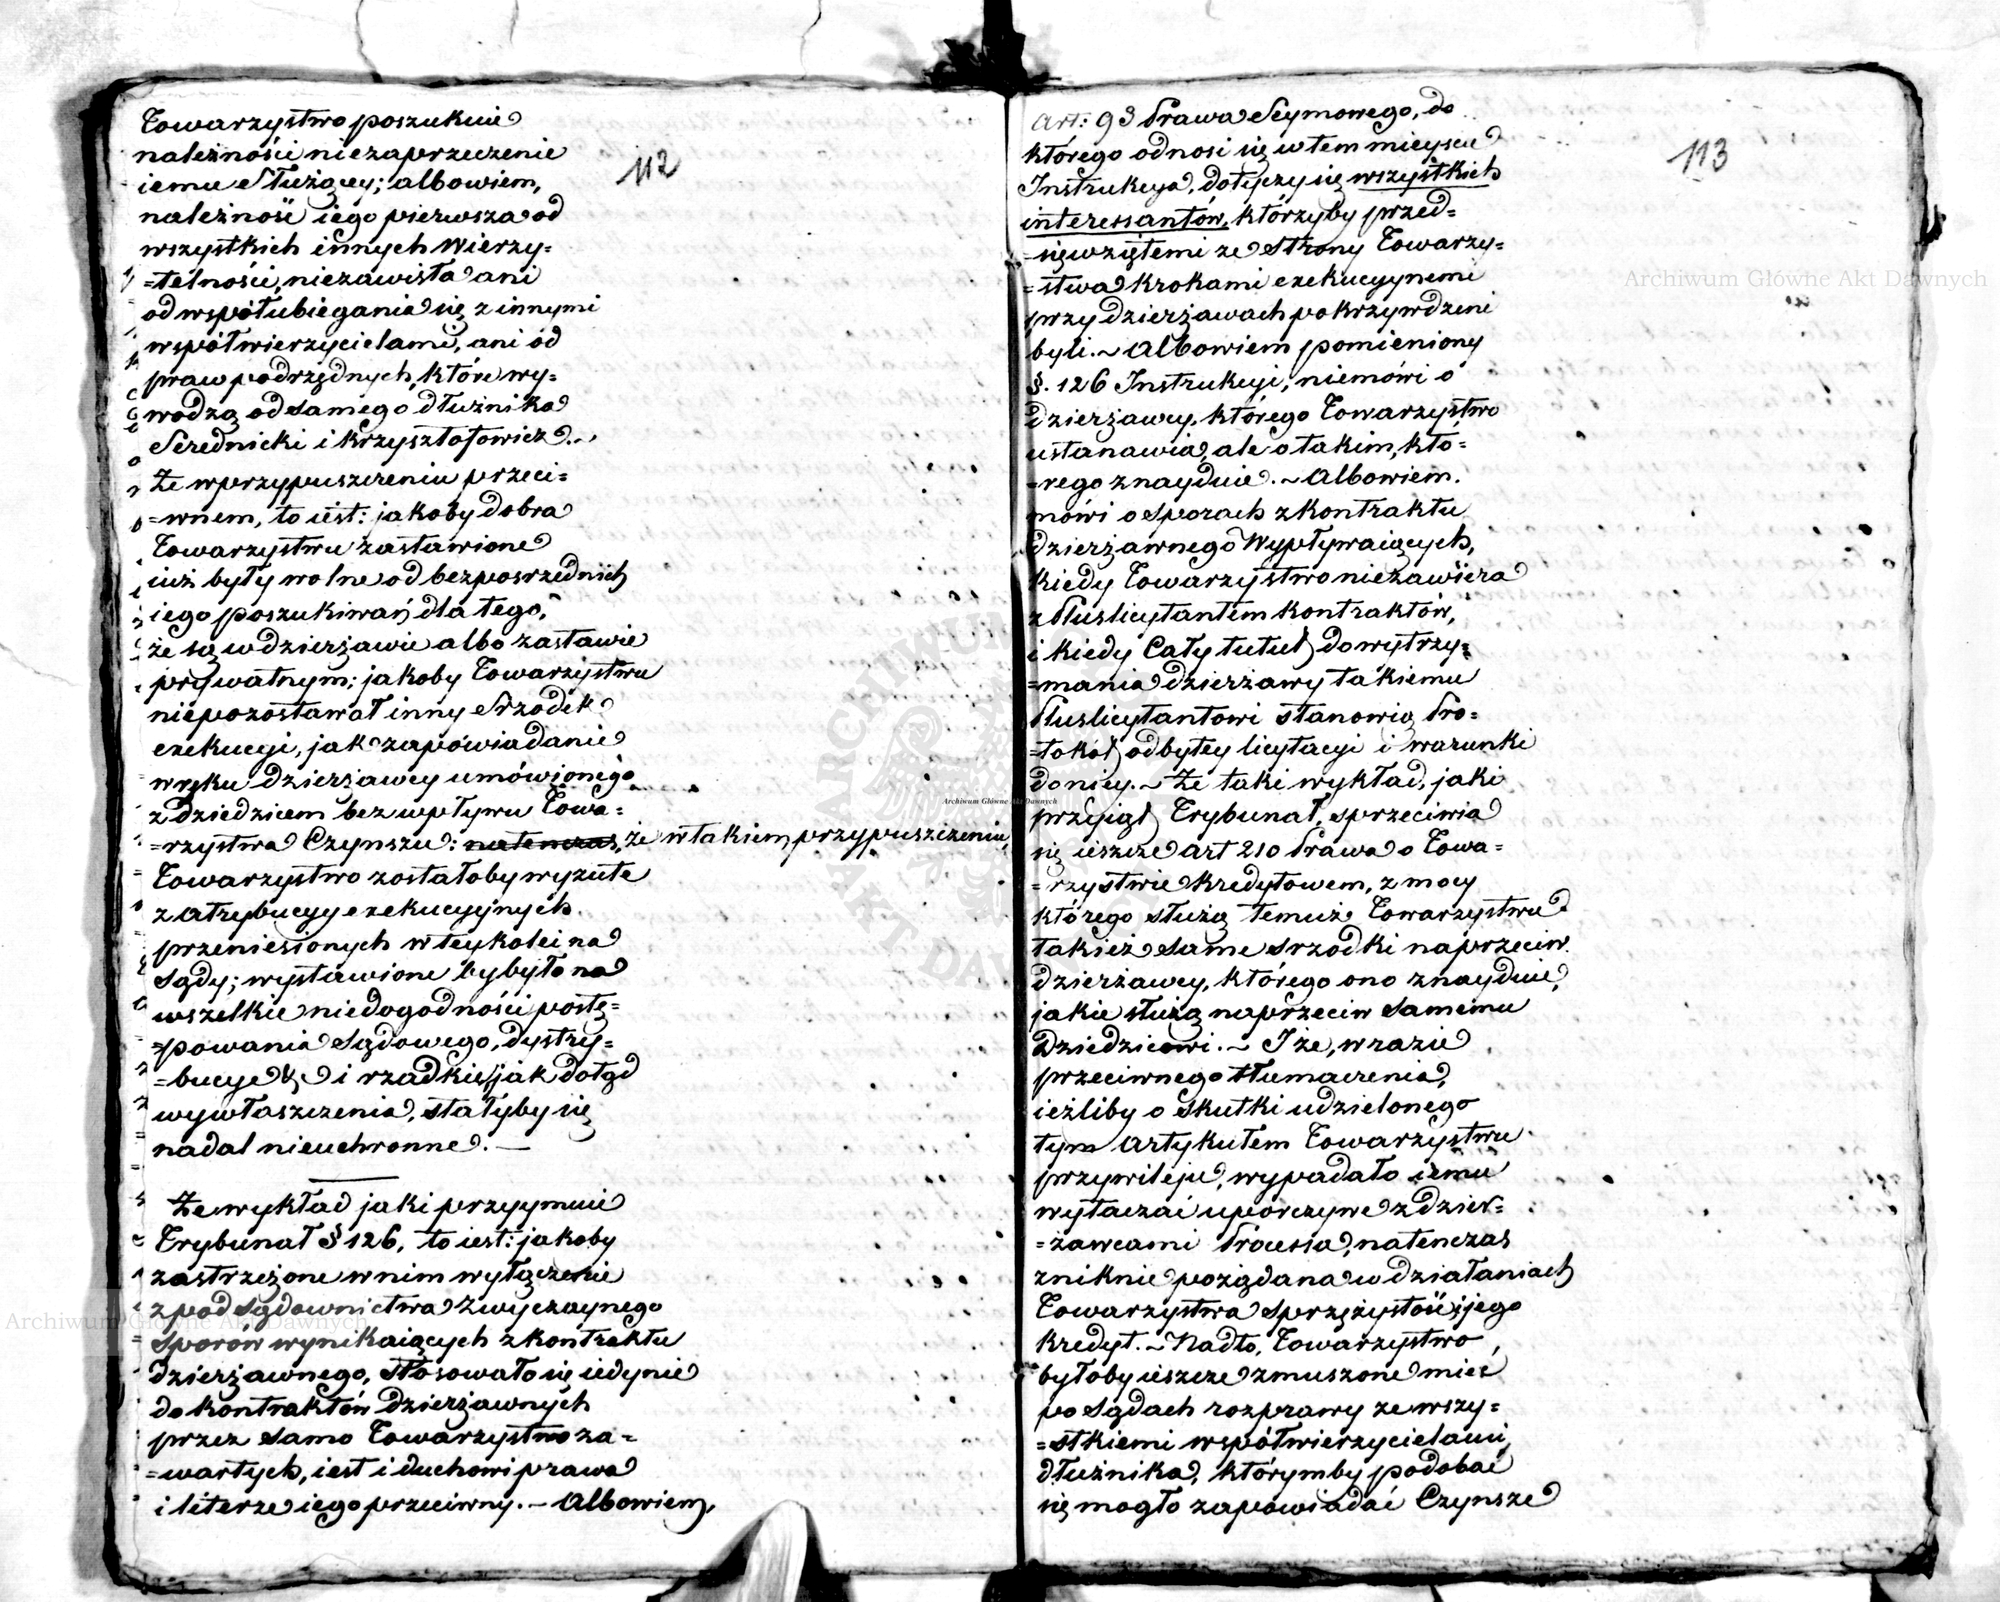 112
Towarzystwo poszukuie
należności niezaprzeczenie
iemu służącey; albowiem,
należność iego pierwsza od
wszystkich innych Wierzy=
=telności, niezawisła ani
od współubiegania się z innymi
współwierzycielami, ani od
praw podrzędnych, które wy=
wodzą od samego dłużnika
Srednicki i Krzysztofowicz.
Że w przypuszczeniu przeci=
=wnem, to iest: jakoby dobra
Towarzystwu zastawione
iuż były wolne od bezposrzednich
iego poszukiwań, dla tego,
że są w dzierżawie albo zastawie
prywatnym; jakoby Towarzystwu
niepozostawał inny srzodek
exekucyi, jak zapowiadanie
w ręku dzierżawcy umówionego
z dziedzicem bez wpływu Towa=
=rzystwa Czynszu: natenczas, że w takiem przypuszczeniu,
Towarzystwo zostałoby wyzute
z atrybucyy exekucyynych
przeniesionych w tey kolei na
Sądy; wystawione by było na
wszelkie niedogodności postę=
=powania Sądowego, dystry=
=bucye & i rzadkie jak dotąd
wywłaszczenia, stałyby się
nadal nieuchronne. —
Że wykład jaki przyymuie
Trybunał § 126, to iest: jakoby
zastrzeżone w nim wyłączenie
z pod sądownictwa zwyczaynego
sporów wynikaiących z kontraktu
dzierżawnego, stosowało się iedynie
do kontraktów dzierżawnych
przez samo Towarzystwo za=
=wartych, iest i duchowi prawa
i literze iego przeciwny. – Albowiem,
113
Art: 93 Prawa Seymowego, do
którego odnosi się w tem mieyscu
Instrukcya, dotyczy się wszystkich
interessantów, którzyby przed=
=sięwziętemi ze strony Towarzy=
=stwa krokami exekucyynemi
przy dzierżawach pokrzywdzeni
byli. ~ Albowiem pomieniony
§. 126 Instrukcyi, niemówi o
dzierżawcy, którego Towarzystwo
ustanawia, ale o takim, któ=
=rego znayduie. ~ Albowiem.
mówi o sporach z kontraktu
dzierżawnego Wypływaiących,
kiedy Towarzystwo niezawiera
z Pluslicytantem kontraktów,
i kiedy Cały tutuł do wytrzy=
=mania dzierżawy takiemu
Pluslicytantowi stanowią Pro=
=tokół odbytey licytacyi i warunki
do niey. ~ Że taki wykład, jaki
przyiął Trybunał, sprzeciwia
się ieszcze art 210 Prawa o Towa=
=rzystwie kredytowem, z mocy
którego służą temuż Towarzystwu
takież same srzodki naprzeciw
dzierżawcy, którego ono znayduie,
jakie służą naprzeciw samemu
Dziedzicowi. ~ I że, w razie
przeciwnego tłumaczenia,
ieżliby o skutki udzielonego
tym Artykułem Towarzystwu
przywileju, wypadało iemu
wytaczać uporczywe z dzier=
=żawcami Processa, natenczas
zniknie pożądana w działaniach
Towarzystwa sprzężystość i jego
kredyt. ~ Nadto, Towarzystwo
byłoby ieszcze zmuszone mieć
po Sądach rozprawy ze wszy=
=stkiemi współwierzycielami
dłużnika, którymby podobać
się mogło zapowiadać Czynsze